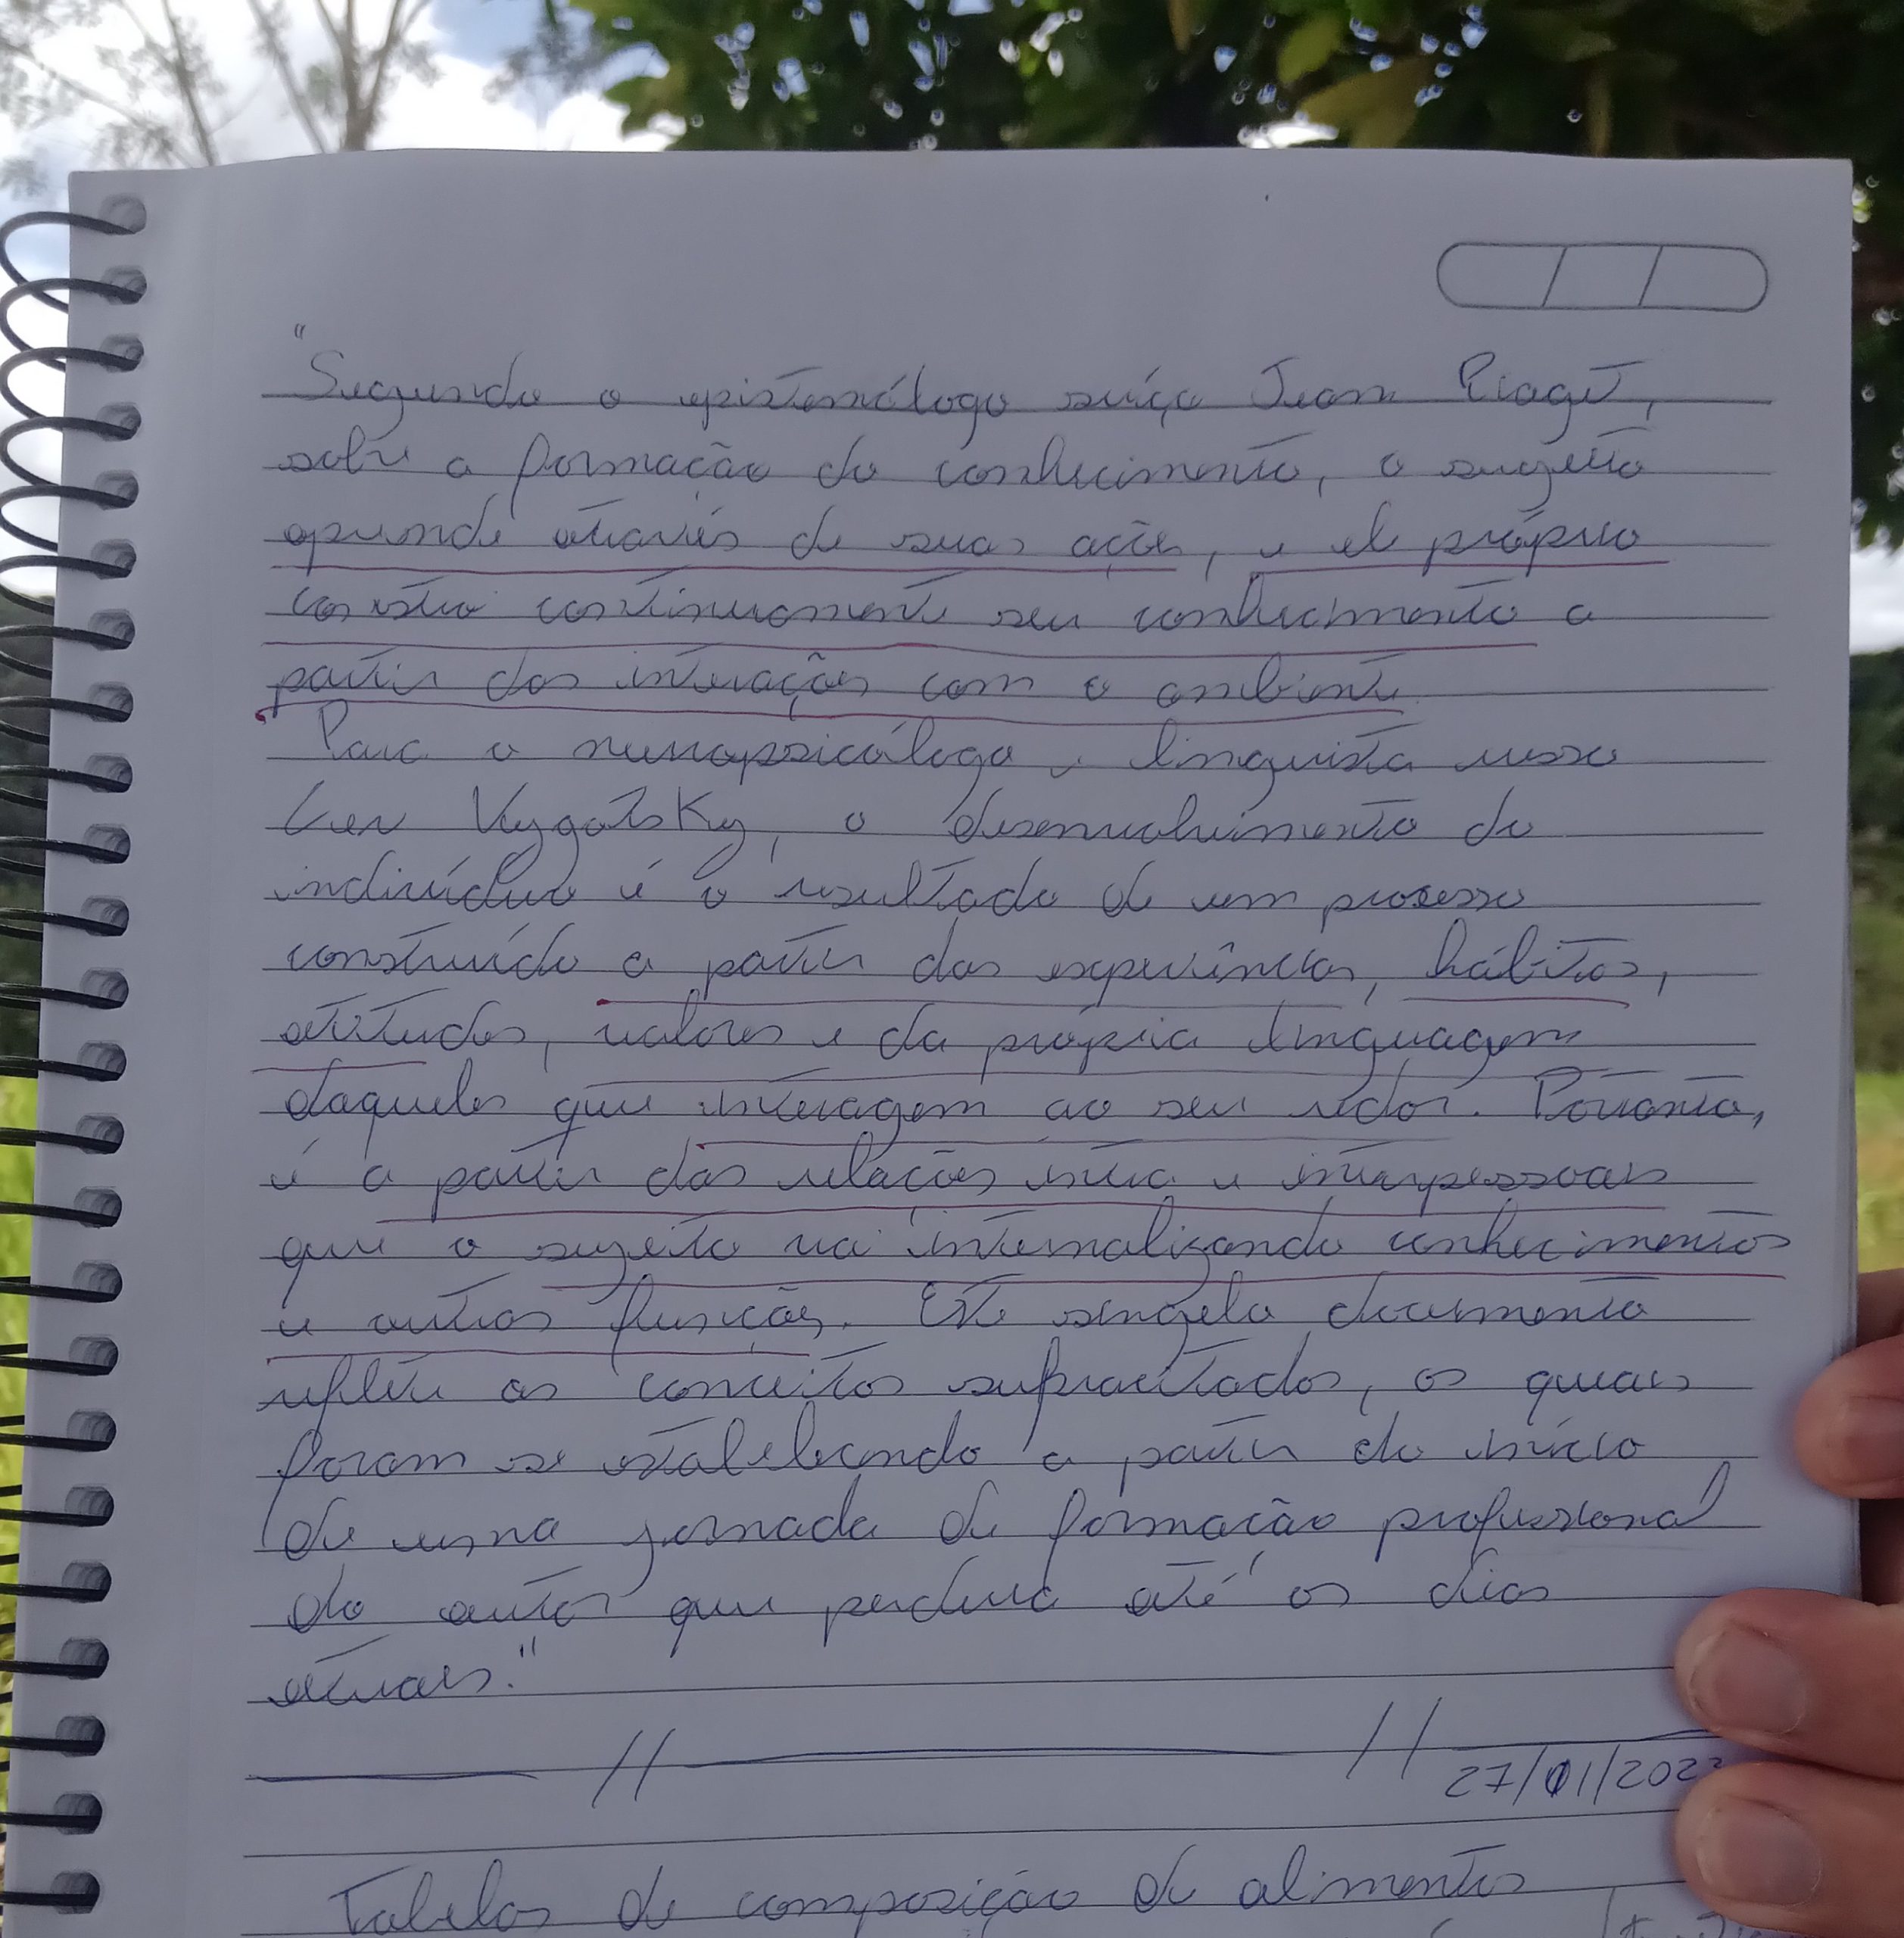 "Segundo o epistemólogo suíço Jean Piaget,
sobre a formação do conhecimento, o sujeito
aprende através de suas ações, e ele próprio
constrói continuamente seu conhecimento a
partir das interações com o ambiente.
Para o neuropsicólogo e linguista russo
Lev Vygotsky, o desenvolvimento do
indivíduo é o resultado de um processo
construído a partir das experiências, hábitos,
atitudes, valores e da própria linguagem
daqueles que interagem ao seu redor. Portanto,
é a partir das relações intra e interpessoais
que o sujeito vai internalizando conhecimentos
e outras funções. Este singelo documento
reflete os conceitos supracitados, os quais
foram se estabelecendo a partir do início
de uma jornada de formação profissional
do autor que perdura até os dias
atuais."
// // 27/01/202
Tabelas de composição de alimentos